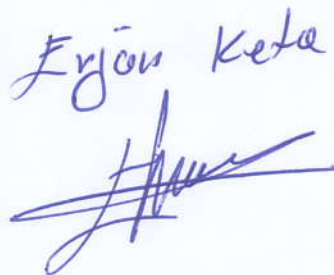 Erjon Keta